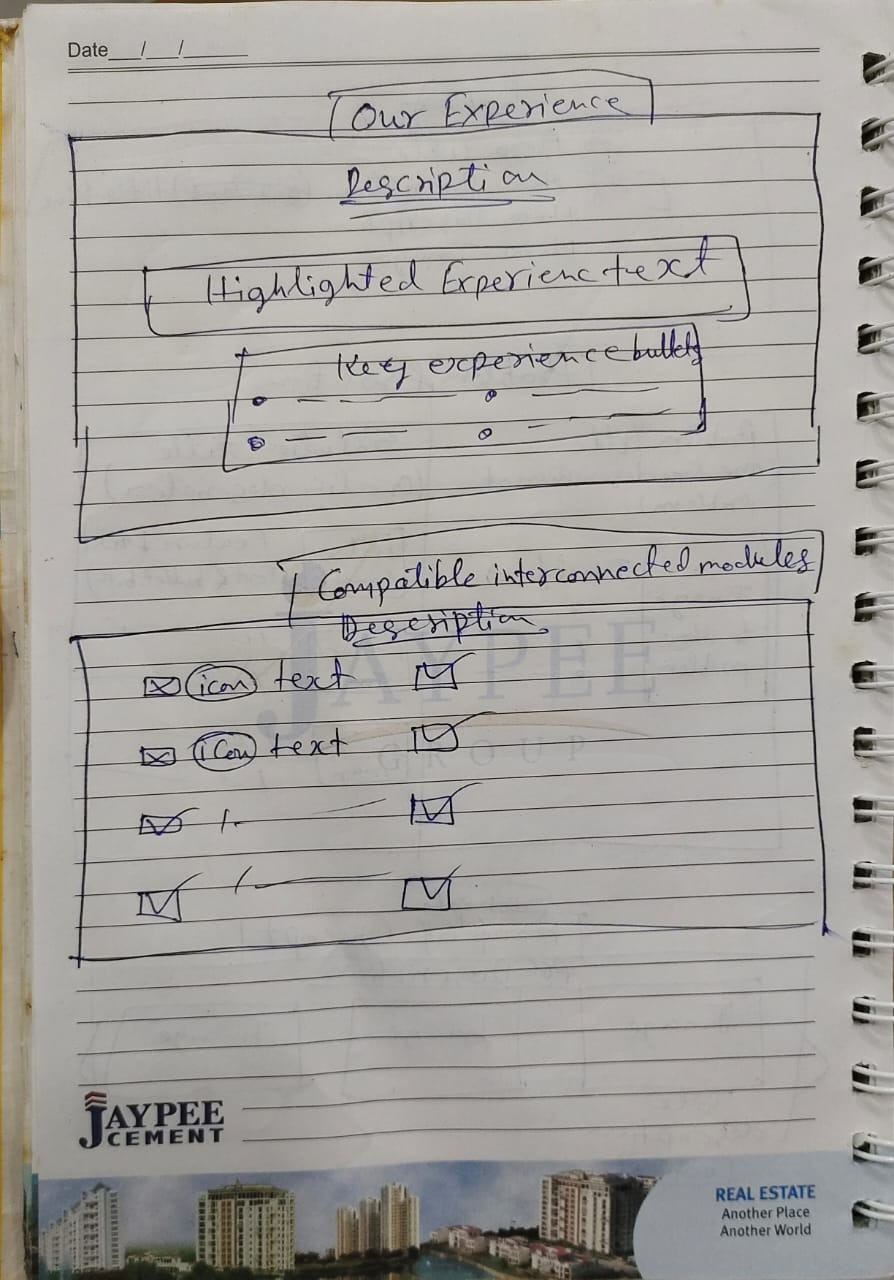 Date__/__/____
Our Experience
Description
Highlighted Experienc text
Key experience bullets
Compatible interconnected modules
Description
icon text
icon text
JAYPEE
GROUP
JAYPEE
CEMENT
REAL ESTATE
Another Place
Another World